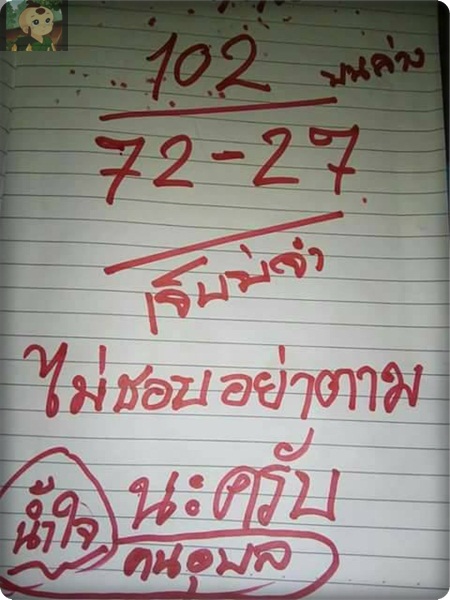 102 บนล่าง
72-27
เจ็บบ่จำ
ไม่ชอบอย่าตาม
นะครับ
น้ำใจ
คนอุบล